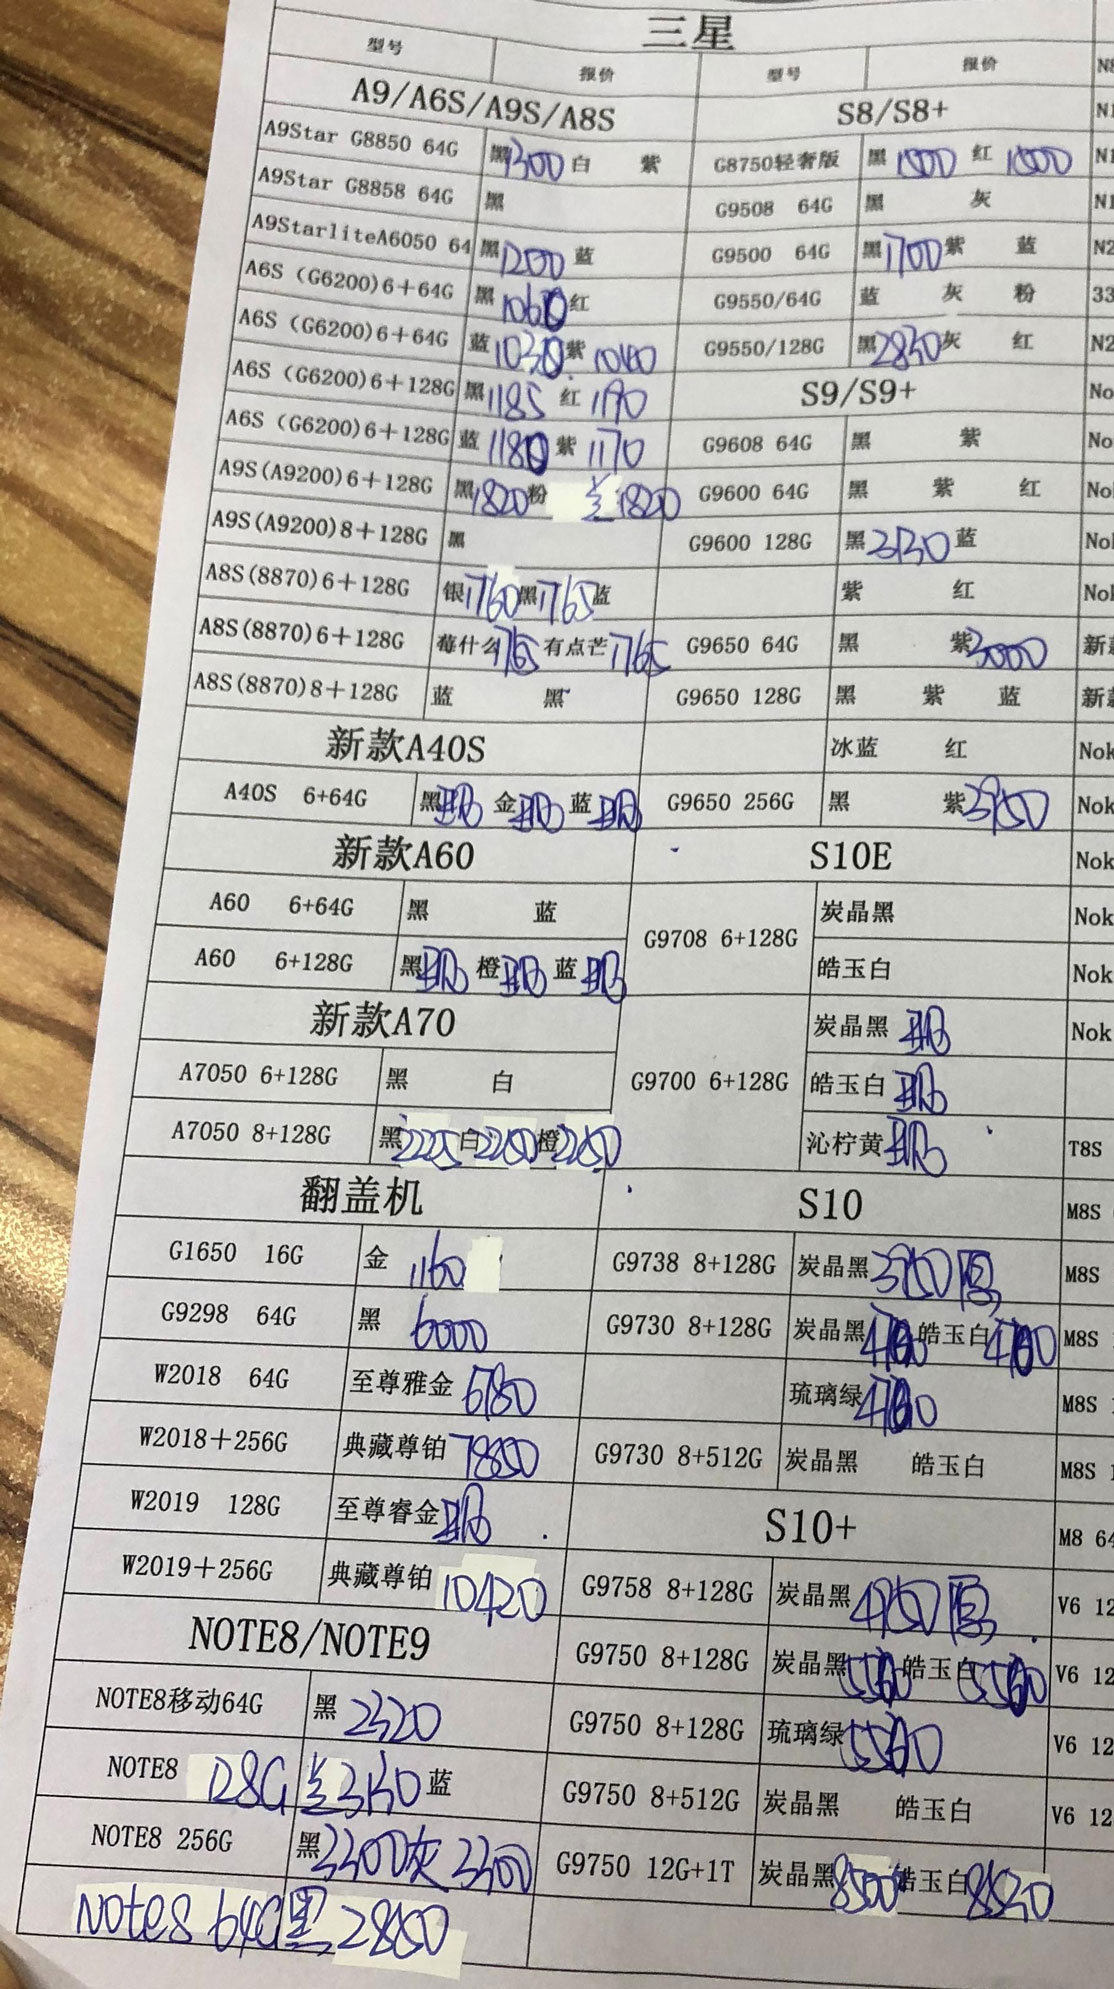 三星
型号 报价 型号 报价
A9/A6S/A9S/A8S S8/S8+
A9Star G8850 64G 黑1300 白 紫 G8750轻奢版 黑 1500 红 1500
A9Star G8858 64G 黑 G9508 64G 黑 灰
A9StarliteA6050 64 黑1200 蓝 G9500 64G 黑1700 紫 蓝
A6S (G6200)6+64G 黑1060 红 G9550/64G 蓝 灰 粉
A6S (G6200)6+64G 蓝1030 紫 1040 G9550/128G 黑2830 灰 红
A6S (G6200)6+128G 黑1185 红 1190 S9/S9+
A6S (G6200)6+128G 蓝1180 紫1170 G9608 64G 黑 紫
A9S(A9200)6+128G 黑1820 粉 兰1820 G9600 64G 黑 紫 红
A9S(A9200)8+128G 黑 G9600 128G 黑3130 蓝
A8S(8870)6+128G 银1760 黑1765 蓝 紫 红
A8S(8870)6+128G 莓什么1765 有点芒1765 G9650 64G 黑 紫3000
A8S(8870)8+128G 蓝 黑 G9650 128G 黑 紫 蓝
新款A40S 冰蓝 红
A40S 6+64G 黑 金 蓝 G9650 256G 黑 紫3950
新款A60 S10E
A60 6+64G 黑 蓝 G9708 6+128G 炭晶黑
A60 6+128G 黑 橙 蓝 皓玉白
新款A70 G9700 6+128G 炭晶黑
A7050 6+128G 黑 白 皓玉白
A7050 8+128G 黑2225 白2250 橙2250 沁柠黄
翻盖机 S10
G1650 16G 金 1160 G9738 8+128G 炭晶黑3950
G9298 64G 黑 6000 G9730 8+128G 炭晶黑 皓玉白
W2018 64G 至尊雅金 6780 琉璃绿
W2018+256G 典藏尊铂 7850 G9730 8+512G 炭晶黑 皓玉白
W2019 128G 至尊睿金 S10+
W2019+256G 典藏尊铂 10420 G9758 8+128G 炭晶黑4950
NOTE8/NOTE9 G9750 8+128G 炭晶黑 皓玉白
NOTE8移动64G 黑 2320 G9750 8+128G 琉璃绿
NOTE8 128G 兰 蓝 G9750 8+512G 炭晶黑 皓玉白
NOTE8 256G 黑3300 灰 3300 G9750 12G+1T 炭晶黑8500 皓玉白8530
Note8 64G黑2850
N8
N1
N1
N1
N2
33
N2
No
No
Nok
Nok
Nok
新
新
Nok
Nok
Nok
Nok
Nok
Nok
T8S
M8S
M8S
M8S
M8S
M8S
M8 64
V6 12
V6 12
V6 12
V6 12